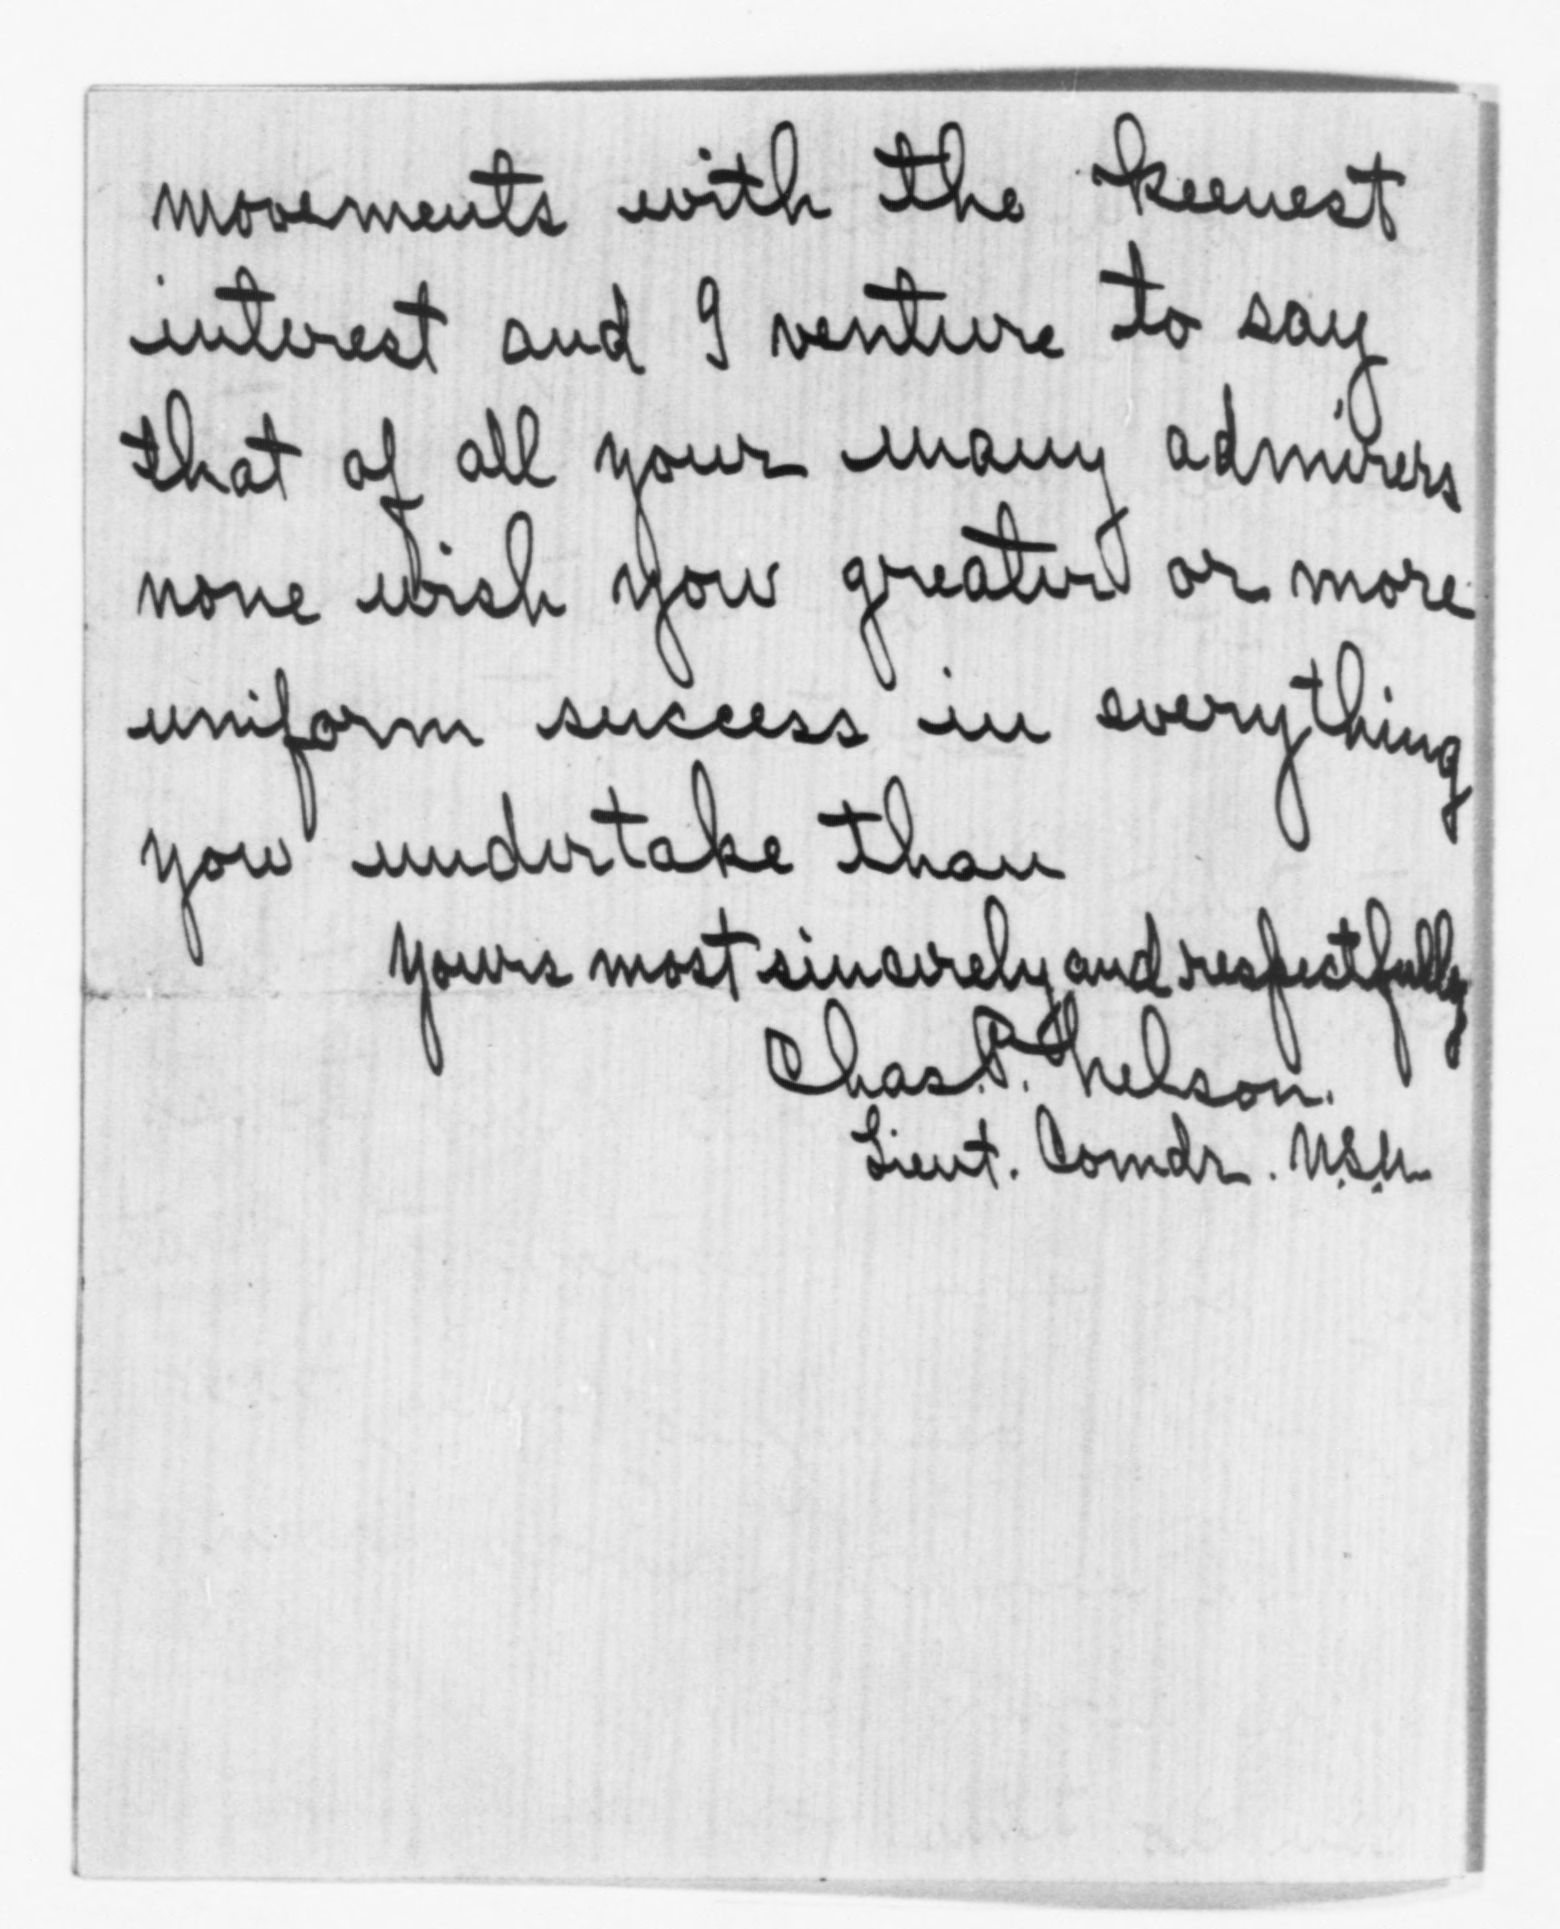 movements with the keenest
interest and I venture to say
that of all your many admirers
none wish you greater or more
uniform success in everything
you undertake than
Yours most sincerely and respectfully
Chas. P. Nelson.
Lieut. Comdr. U.S.N.